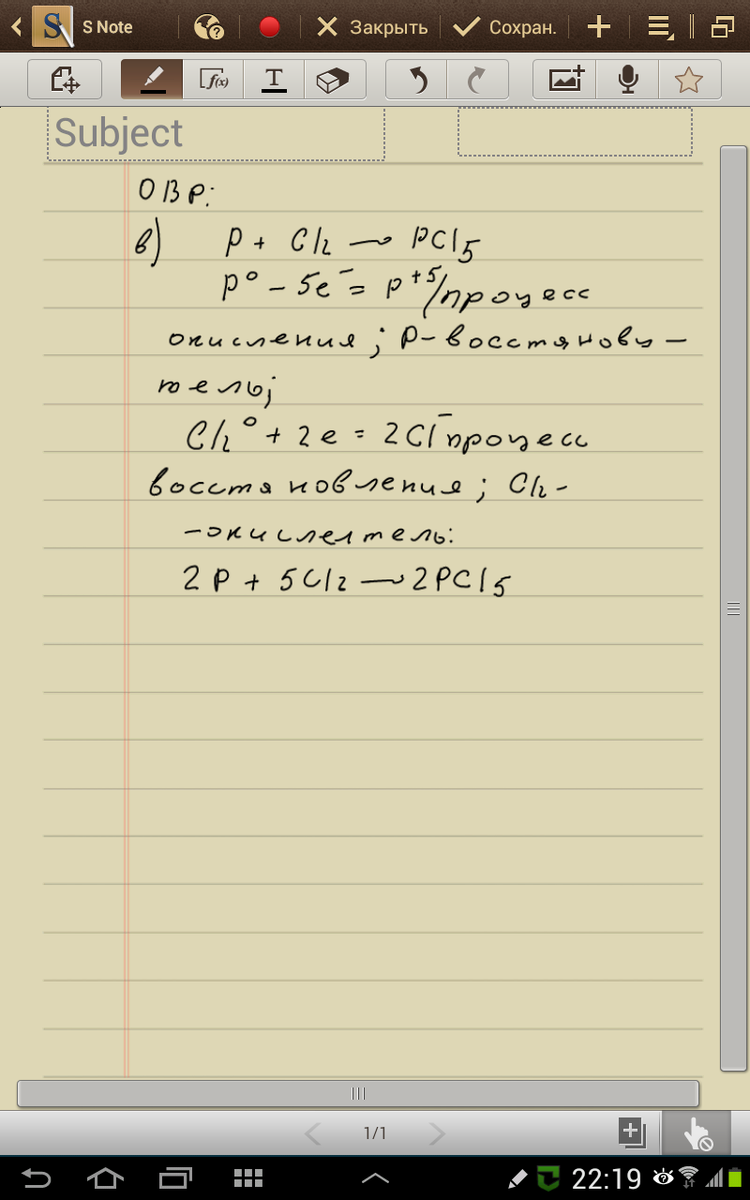 S Note
Закрыть
Сохран.
f(x)
T
Subject
ОВР:
в) P + Cl₂ → PCl₅
P⁰ - 5e⁻ = P⁺⁵/процесс
окисления; P-восстянови-
тель;
Cl₂⁰ + 2e = 2Cl⁻ процесс
восстяновления; Cl₂-
-окислелтель:
2P + 5Cl₂ → 2PCl₅
1/1
22:19